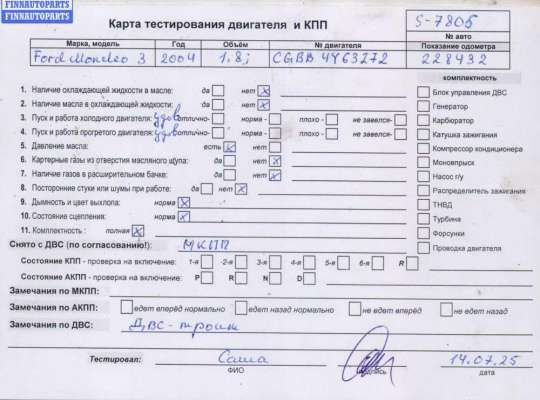 FINNAUTOPARTS
FINNAUTOPARTS
Карта тестирования двигателя и КПП
S-7805
№ авто
Марка, модель Год Объём № двигателя Показание одометра
Ford Mondeo 3 2004 1.8i CGBB 4Y63272 228432
комплектность
1. Наличие охлаждающей жидкости в масле: да нет
2. Наличие масла в охлаждающей жидкости: да нет
3. Пуск и работа холодного двигателя: удов отлично- норма - плохо - не завелся-
4. Пуск и работа прогретого двигателя: удов отлично- норма - плохо - не завелся-
5. Давление масла: есть нет
6. Картерные газы из отверстия масляного щупа: да нет
7. Наличие газов в расширительном бачке: да нет
8. Посторонние стуки или шумы при работе: да нет
9. Дымность и цвет выхлопа: норма
10. Состояние сцепления: норма
11. Комплектность: полная
Блок управления ДВС
Генератор
Карбюратор
Катушка зажигания
Компрессор кондиционера
Моновпрыск
Насос г/у
Распределитель зажигания
ТНВД
Турбина
Форсунки
Проводка двигателя
Снято с ДВС (по согласованию!): МКПП
Состояние КПП - проверка на включение: 1-я 2-я 3-я 4-я 5-я 6-я R
Состояние АКПП - проверка на включение: P R N D
Замечания по МКПП:
Замечания по АКПП: едет вперёд нормально едет назад нормально не едет вперёд не едет назад
Замечания по ДВС: ДВС - троит
Тестировал: Саша 14.07.25
ФИО подпись дата